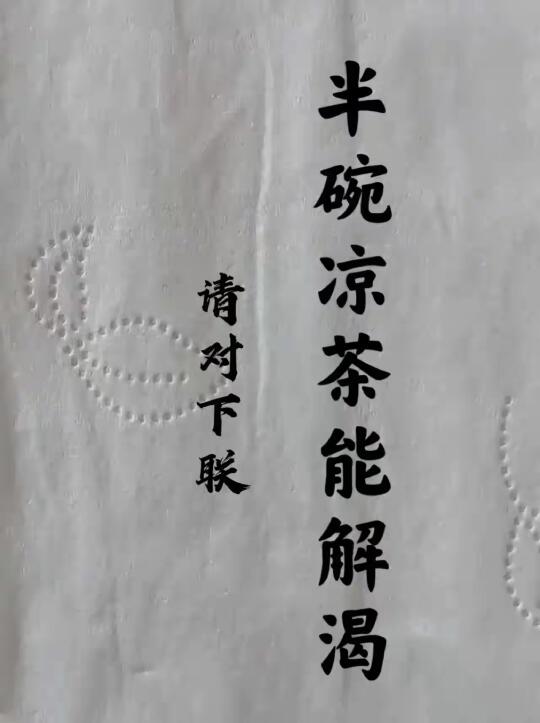 半碗凉茶能解渴
请对下联